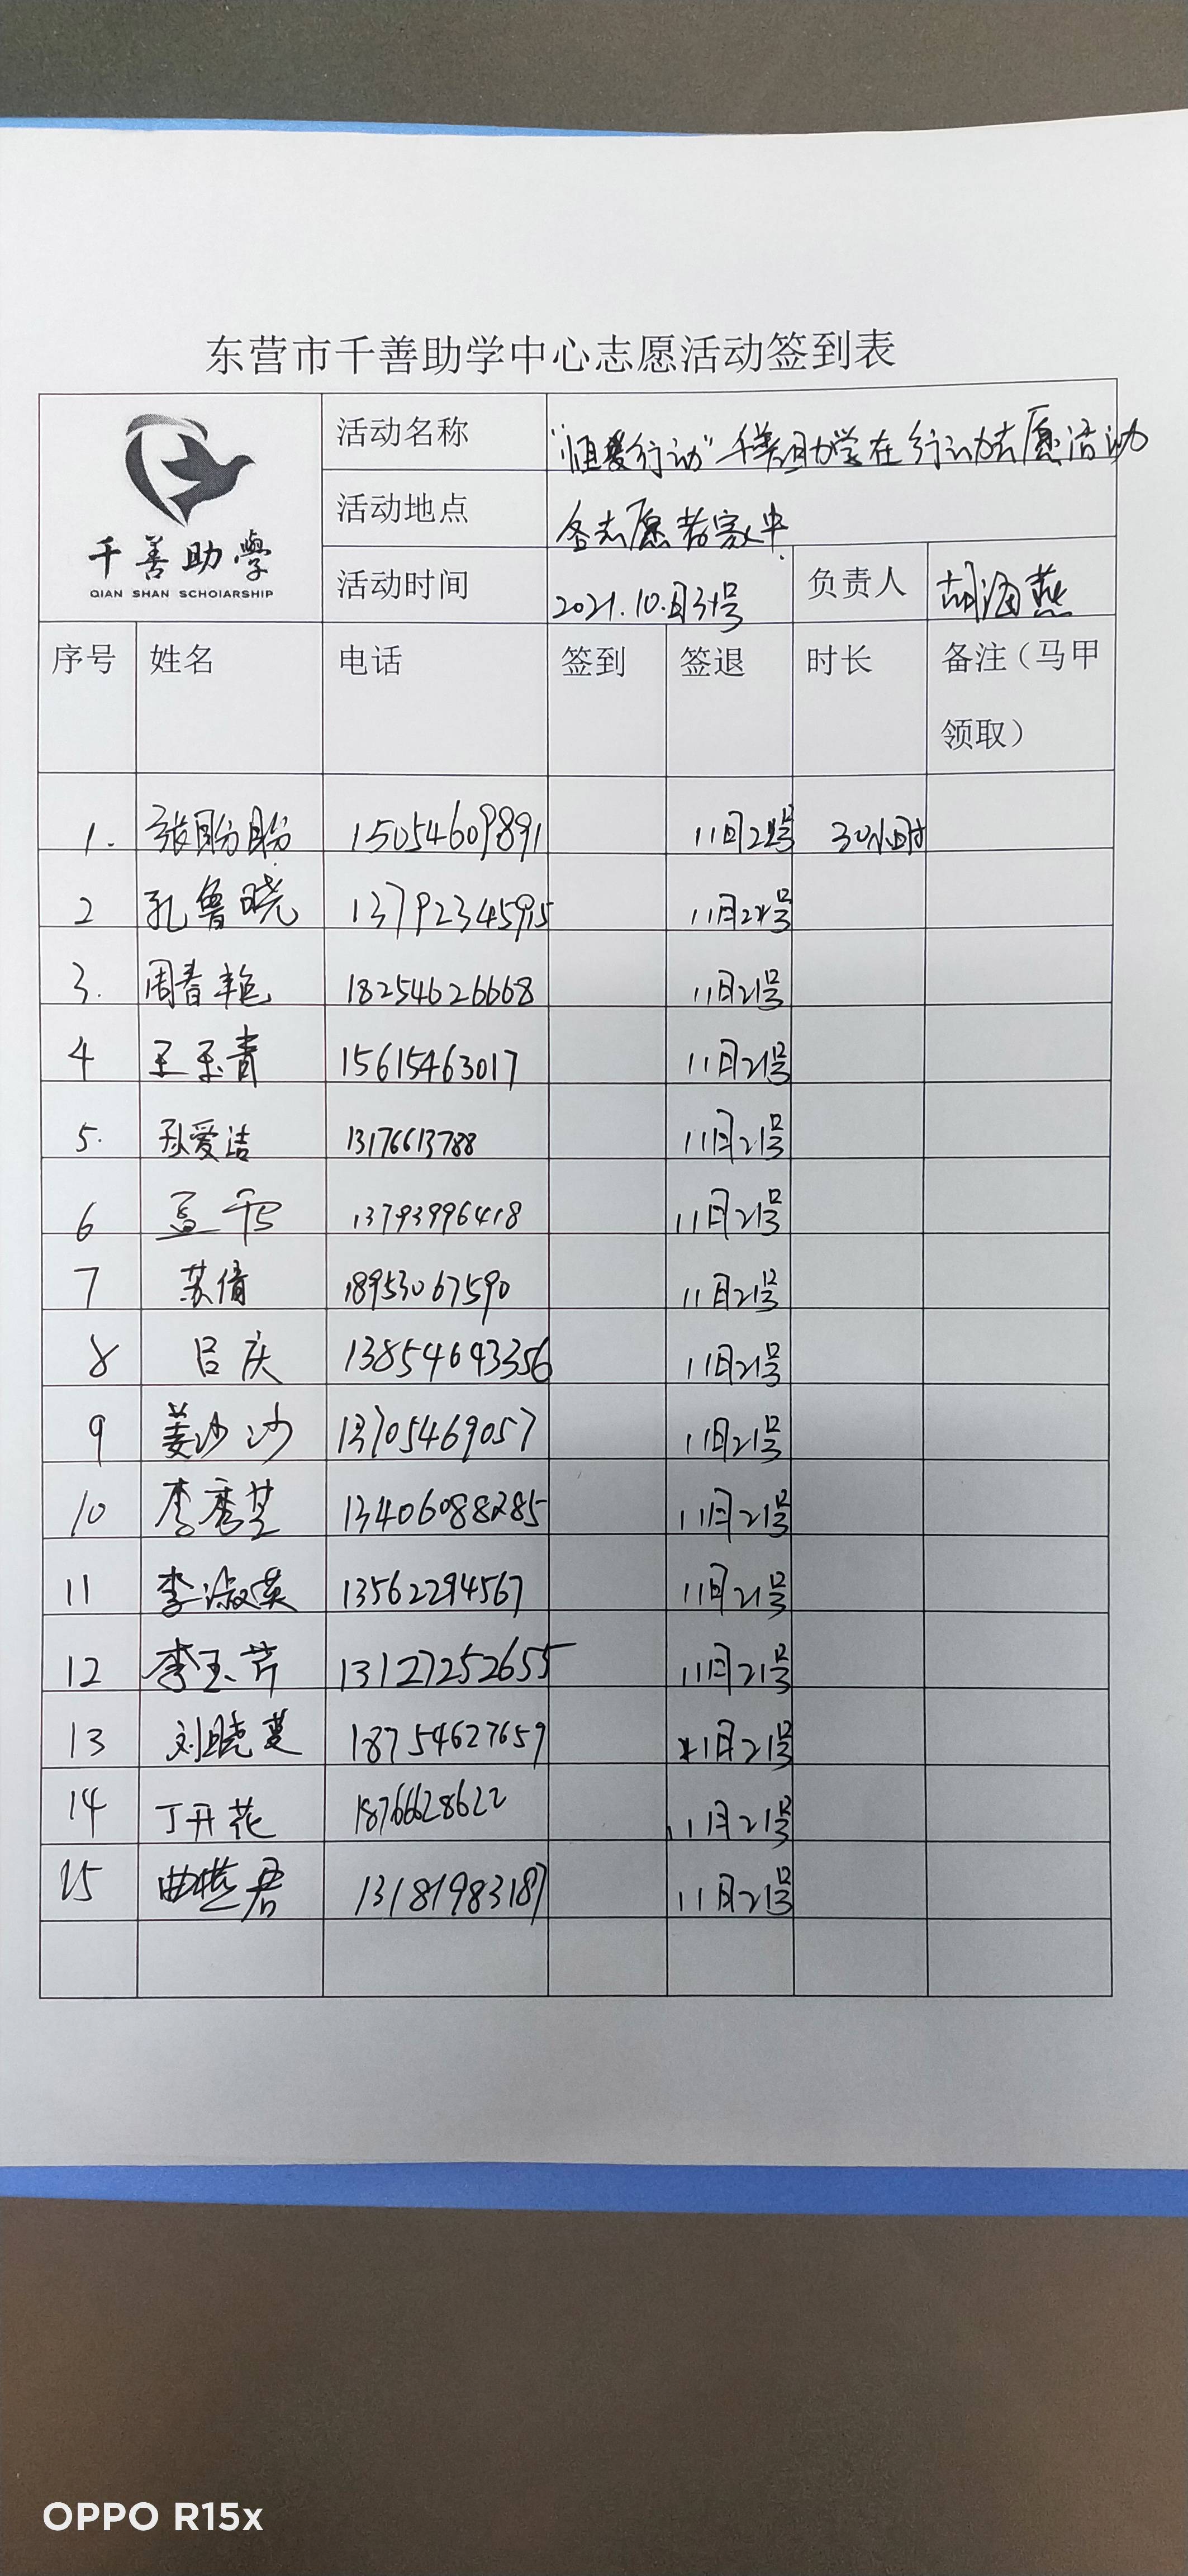 东营市千善助学中心志愿活动签到表
千善助學
QIAN SHAN SCHOIARSHIP
活动名称 "恒爱行动"千善助学在行动志愿活动
活动地点 各志愿者家中
活动时间 2021.10.月31号 负责人 胡海燕
序号 姓名 电话 签到 签退 时长 备注（马甲
领取）
1. 张盼盼 15054609891 11月21号 30小时
2 孔鲁晓 13792345995 11月21号
3. 周春艳 18254626668 11月21号
4 王玉青 15615463017 11月21号
5. 孙爱洁 13176613788 11月21号
6 13793996418 11月21号
7 苏倩 18953067590 11月21号
8 吕庆 13854643356 11月21号
9 姜沙沙 13705469057 11月21号
10 李秀芝 13406088285 11月21号
11 李淑英 13562294567 11月21号
12 李玉芹 13127252655 11月21号
13 刘晓 18754627659 11月21号
14 丁开花 18766628622 11月21号
15 曲燕君 13181983187 11月21号
OPPO R15x